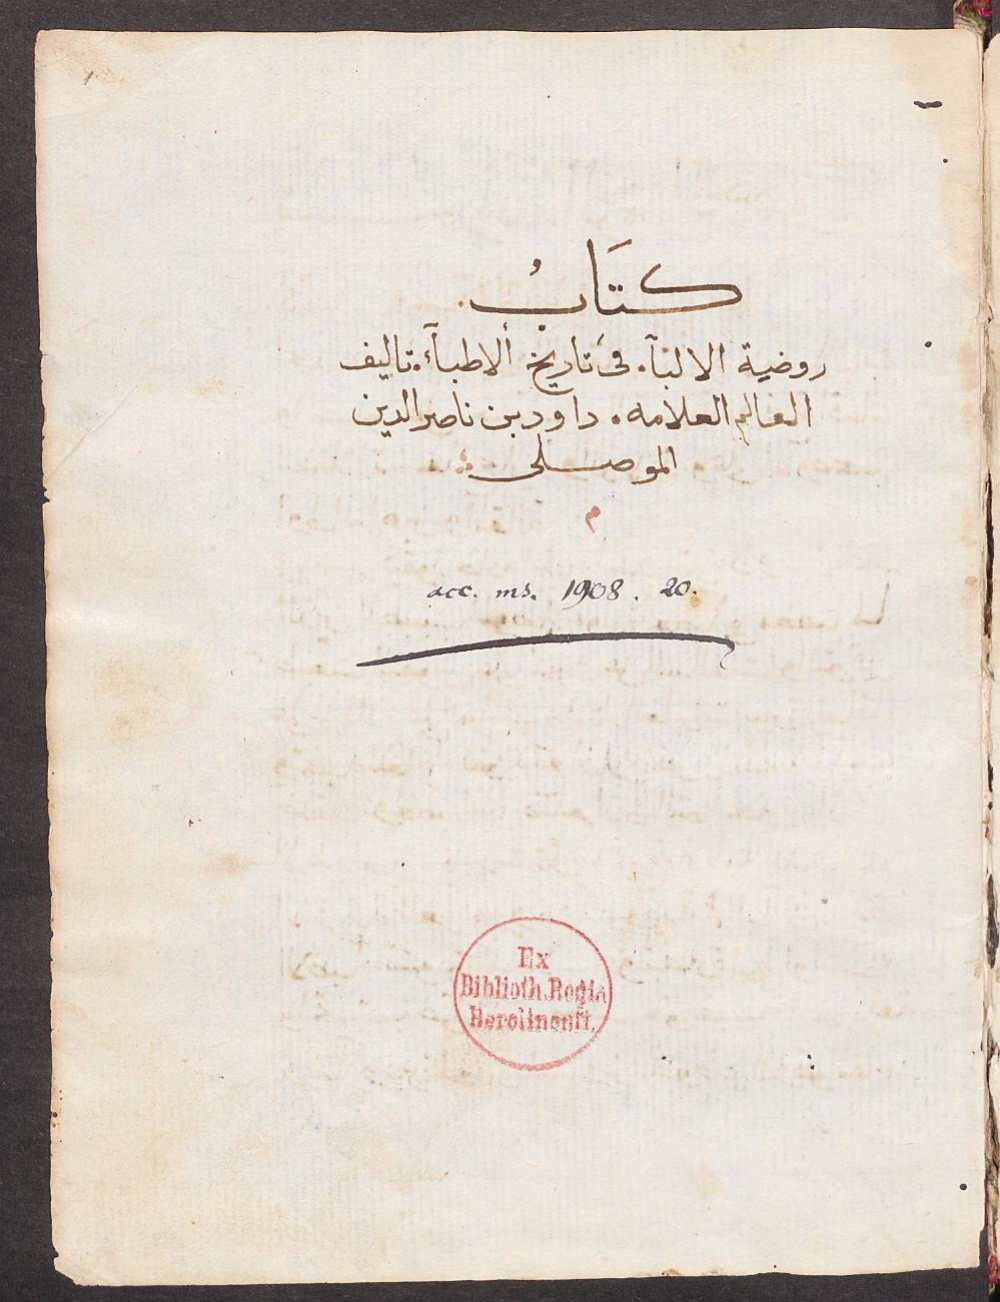 1
كتَابُ
روضية الالبآ. فى تاريخ ألاطبآء. تاليف
العالم العلامه. داود بن ناصر الدين
الموصلى
م
acc. ms. 1908. 20.
Ex
Biblioth. Regia
Berolinensi.